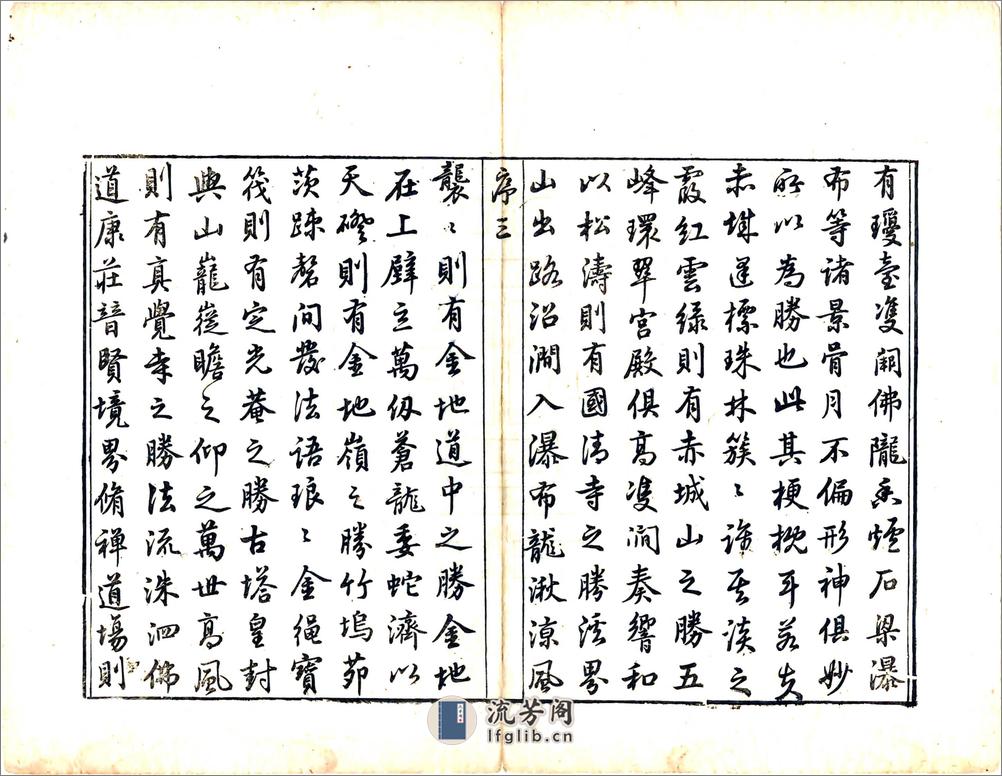 有瓊臺雙闕佛隴香爐石梁瀑
布等諸景骨月不偏形神俱妙
所以為勝也此其梗概耳若夫
赤城遥標珠林簇〻請試談之
霞紅雲綠則有赤城山之勝五
峰環翠宮殿俱高雙澗奏響和
以松濤則有國清寺之勝溪界
山出路沿澗入瀑布龍湫涼風
序三
襲〻則有金地道中之勝金地
在上壁立萬仭蒼龍委蛇濟以
天磴則有金地嶺之勝竹塢茆
茨疎磬間發法語琅〻金繩寶
筏則有定光菴之勝古塔皇封
與山巃嵸瞻之仰之萬世高風
則有真覺寺之勝法流洙泗佛
道康莊普賢境界脩禪道場則
流芳阁
lfglib.cn